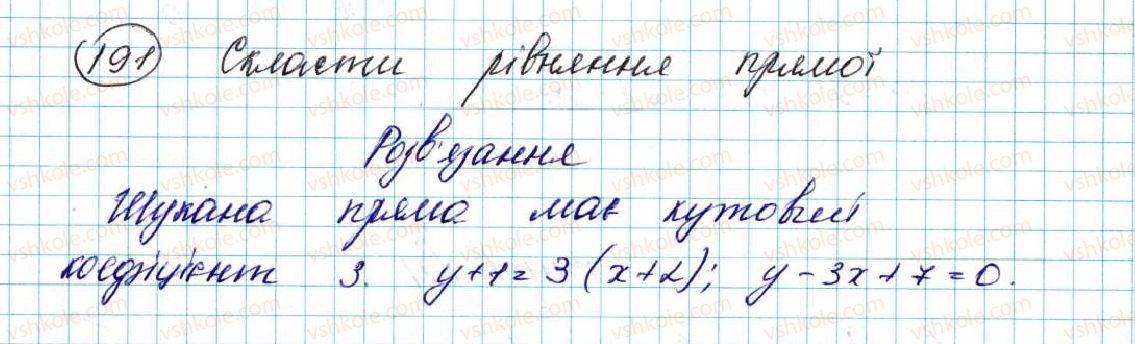 191 Скласти рівняння прямої
Розв'язання
Шукана пряма має кутовий
коефіцієнт 3. y+1=3(x+2); y-3x+7=0.